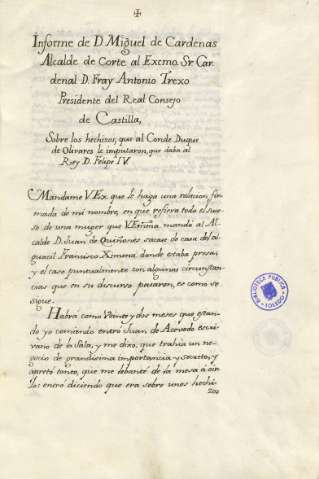 Informe de D. Miguel de Cardenas
Alcalde de Corte al Excmo. Sr. Car
denal D. Fray Antonio Trexo
Presidente del Real Consejo
de Castilla,
Sobre los hechizos, que al Conde Duque
de Olivares le imputaron, que daba al
Rey D. Felipe IV.
Mandame V. Ex. que le haga una relacion fir
mada de mi nombre, en que refiera todo el suce
so de una muger que V. Emina. mandó al Al
calde D. Juan de Quiñones sacase de casa del al
guacil Francisco Ximena donde estaba presa;
y el caso puntualmente con algunas circunstan
cias que en su discurso pasaron, es como se
sigue.
Habra como Veinte y dos meses que estan
do yo comiendo entró Juan de Acevedo escri
vano de la Sala, y me dixo, que trahia un ne
gocio de grandisima importancia y secreto, y
apretó tanto, que me lebanté de la mesa á oir
los entró diciendo que era sobre unos hechi
zos
BIBLIOTECA PUBLICA
TOLEDO